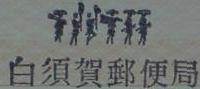 白須賀郵便局